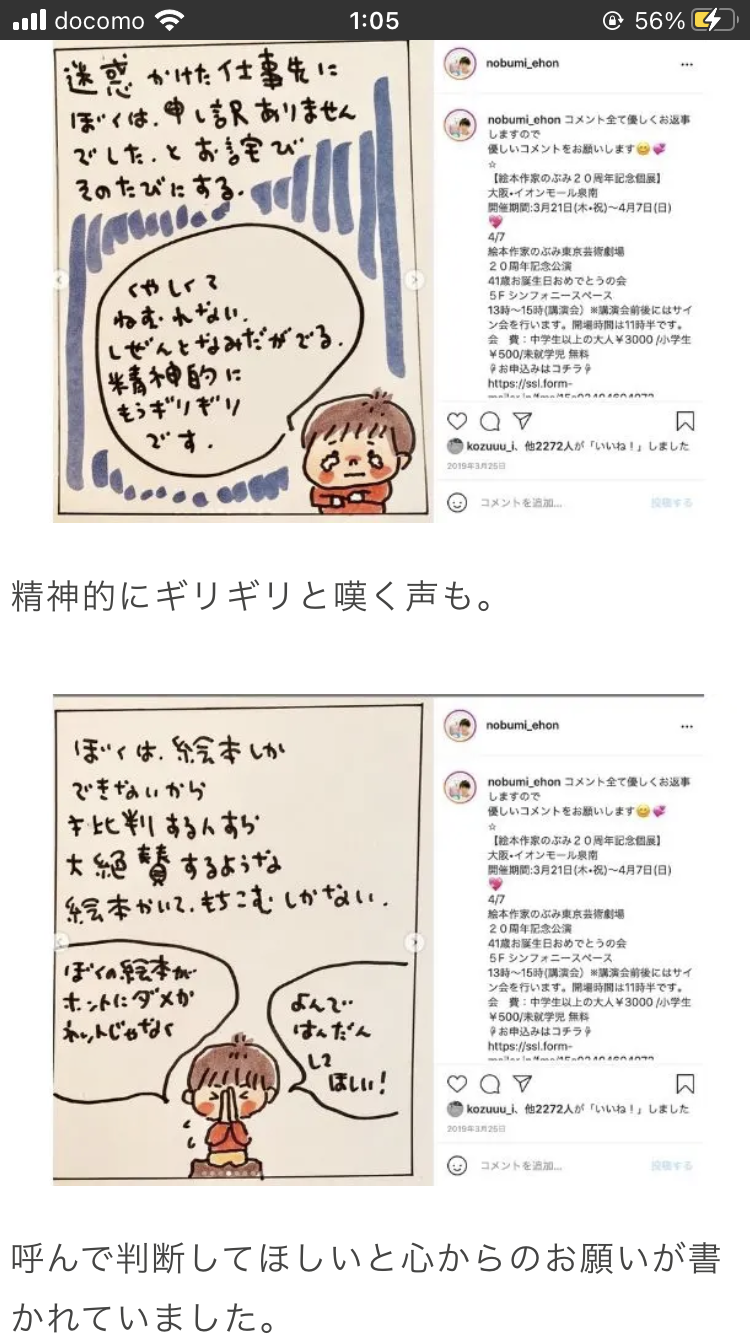 docomo 1:05 56%
迷惑 かけた 仕事先に
ぼくは、申し訳ありません
でした。と お詫び
そのたびにする。
くやしくて
ねむれない。
しぜんとなみだがでる。
精神的に
もうギリギリ
です。
nobumi_ehon
nobumi_ehon コメント全て優しくお返事
しますので
優しいコメントをお願いします😊💞
☆
【絵本作家のぶみ20周年記念個展】
大阪・イオンモール泉南
開催期間:3月21日(木・祝)〜4月7日(日)
💖
4/7
絵本作家のぶみ東京芸術劇場
20周年記念公演
41歳お誕生日おめでとうの会
5F シンフォニースペース
13時〜15時(講演会)※講演会前後にはサイ
ン会を行います。開場時間は11時半です。
会 費:中学生以上の大人¥3000 /小学生
¥500/未就学児 無料
お申込みはコチラ
https://ssl.form-
kozuuu_i、他2272人が「いいね!」しました
2019年3月25日
コメントを追加...
投稿する
精神的にギリギリと嘆く声も。
ぼくは、絵本しか
できないから
批判する人すら
大絶賛するような
絵本かいて、もちこむしかない。
ぼくの絵本が
ホントにダメか
ネットじゃなく
よんで
はんだん
して
ほしい!
nobumi_ehon
nobumi_ehon コメント全て優しくお返事
しますので
優しいコメントをお願いします😊💞
☆
【絵本作家のぶみ20周年記念個展】
大阪・イオンモール泉南
開催期間:3月21日(木・祝)〜4月7日(日)
💖
4/7
絵本作家のぶみ東京芸術劇場
20周年記念公演
41歳お誕生日おめでとうの会
5F シンフォニースペース
13時〜15時(講演会)※講演会前後にはサイ
ン会を行います。開場時間は11時半です。
会 費:中学生以上の大人¥3000 /小学生
¥500/未就学児 無料
お申込みはコチラ
https://ssl.form-
kozuuu_i、他2272人が「いいね!」しました
2019年3月25日
コメントを追加...
投稿する
呼んで判断してほしいと心からのお願いが書
かれていました。